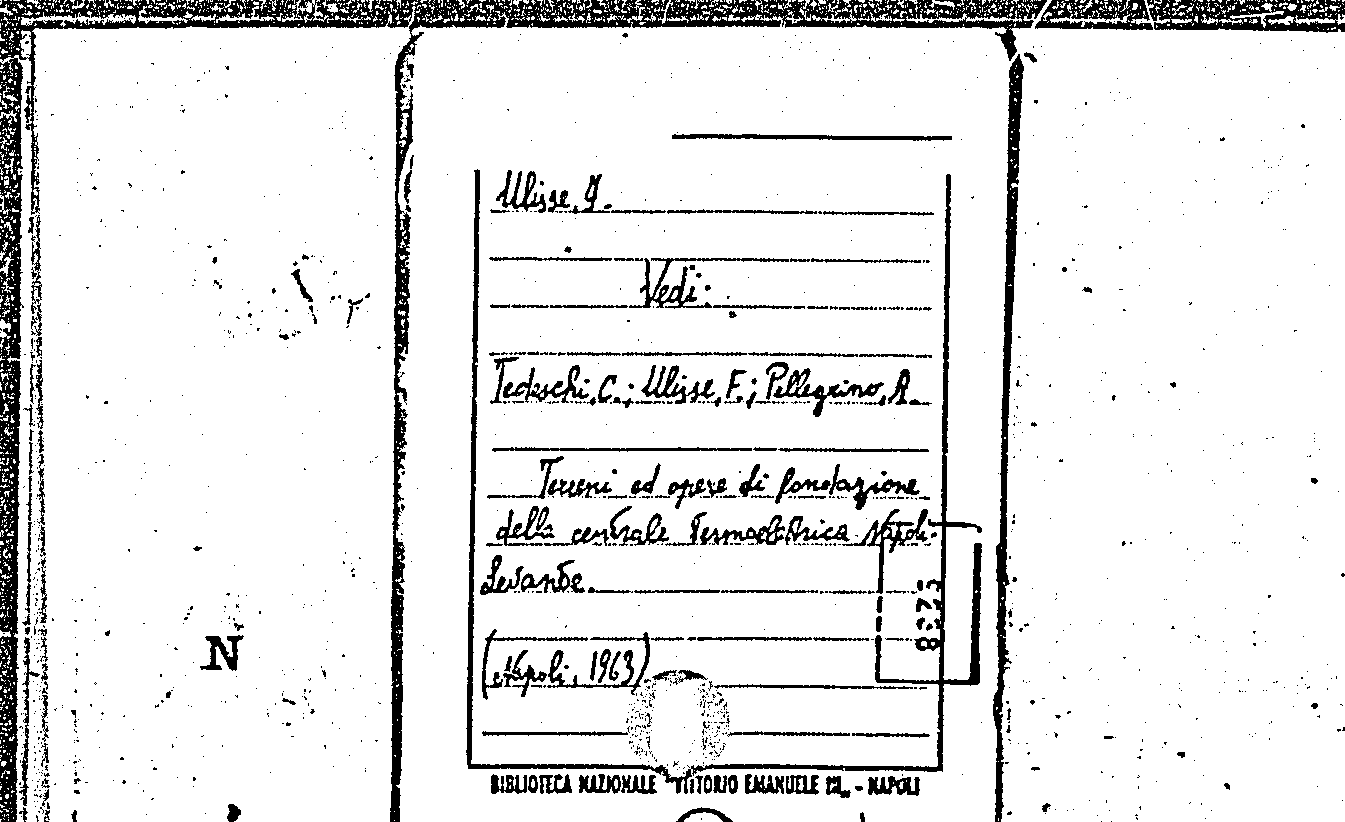 Ulisse, F.
Vedi:
Tedeschi, C.; Ulisse, F.; Pellegrino, A.
Terreni ed opere di fondazione
della centrale Termoelettrica Napoli-
Levante.
8273
N
(Napoli, 1963)
BIBLIOTECA NAZIONALE VITTORIO EMANUELE III - NAPOLI